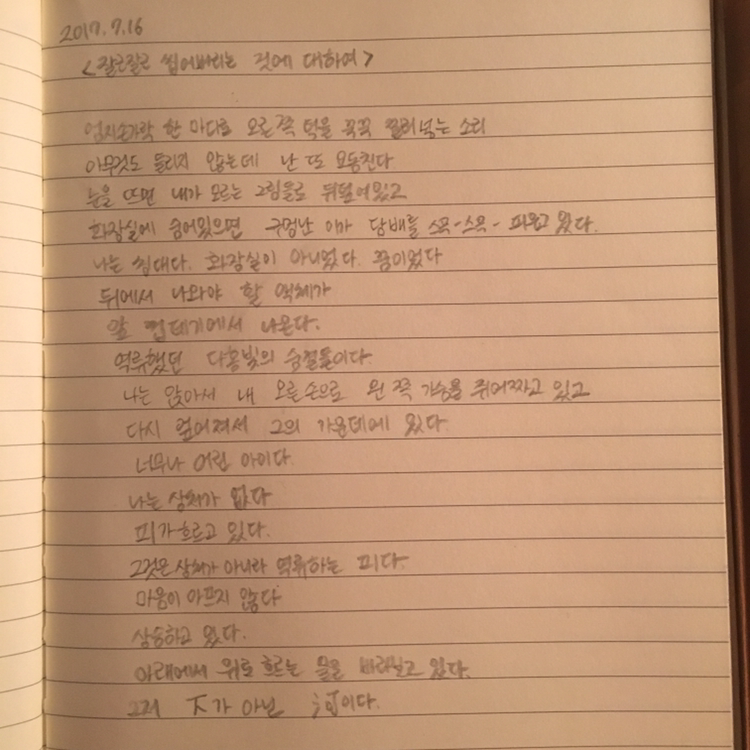 2017.7.16
<잘근잘근 씹어버리는 것에 대하여>
엄지손가락 한 마디로 오른쪽 턱을 꾹꾹 눌러넣는 소리
아무것도 들리지 않는데 난 또 요동친다
눈을 뜨면 내가 모르는 그림들로 뒤덮여있고
화장실에 숨어있으면 구멍난 이마 담배를 스윽-스윽- 피우고 왔다.
나는 침대다. 화장실이 아니었다. 꿈이었다
뒤에서 나와야 할 액체가
앞 껍데기에서 나온다.
역류했던 다홍빛의 숨결들이다.
나는 앉아서 내 오른손으로 왼쪽 가슴을 쥐어짜고 있고
다시 엎어져서 그의 가운데에 있다.
너무나 어린 아이다.
나는 상처가 없다
피가 흐르고 있다.
그것은 상처가 아니라 역류하는 피다.
마음이 아프지 않다
상승하고 있다.
아래에서 위로 흐르는 물을 바라보고 있다.
그저 下가 아닌 이다.